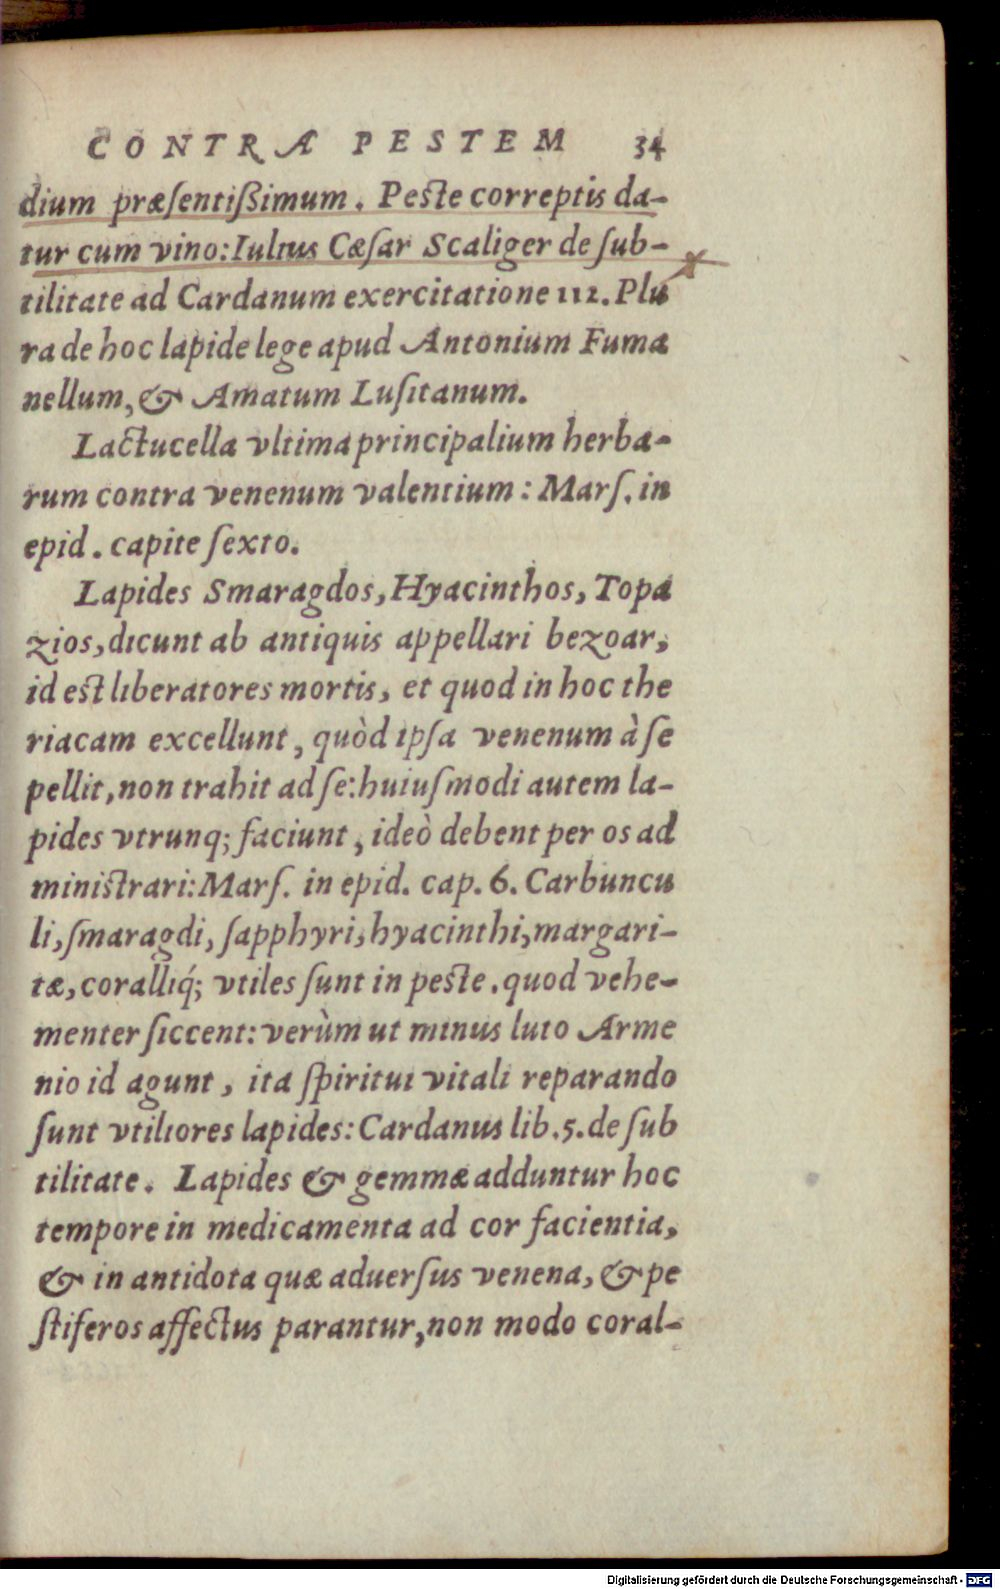 CONTRA PESTEM 34
dium præsentißimum. Peste correptis da-
tur cum vino: Iulius Cæsar Scaliger de sub-
tilitate ad Cardanum exercitatione 112. Plu
ra de hoc lapide lege apud Antonium Fuma
nellum, & Amatum Lusitanum.
Lactucella vltima principalium herba-
rum contra venenum valentium: Mars. in
epid. capite sexto.
Lapides Smaragdos, Hyacinthos, Topa
zios, dicunt ab antiquis appellari bezoar,
id est liberatores mortis, et quod in hoc the
riacam excellunt, quòd ipsa venenum à se
pellit, non trahit ad se: huiusmodi autem la-
pides vtrunq; faciunt, ideò debent per os ad
ministrari: Mars. in epid. cap. 6. Carbuncu
li, smaragdi, sapphyri, hyacinthi, margari-
tæ, coralliq́; vtiles sunt in peste. quod vehe-
menter siccent: verùm ut minus luto Arme
nio id agunt, ita spiritui vitali reparando
sunt vtiliores lapides: Cardanus lib. 5. de sub
tilitate. Lapides & gemmæ adduntur hoc
tempore in medicamenta ad cor facientia,
& in antidota quæ aduersus venena, & pe
stiferos affectus parantur, non modo coral-
Digitalisierung gefördert durch die Deutsche Forschungsgemeinschaft - DFG